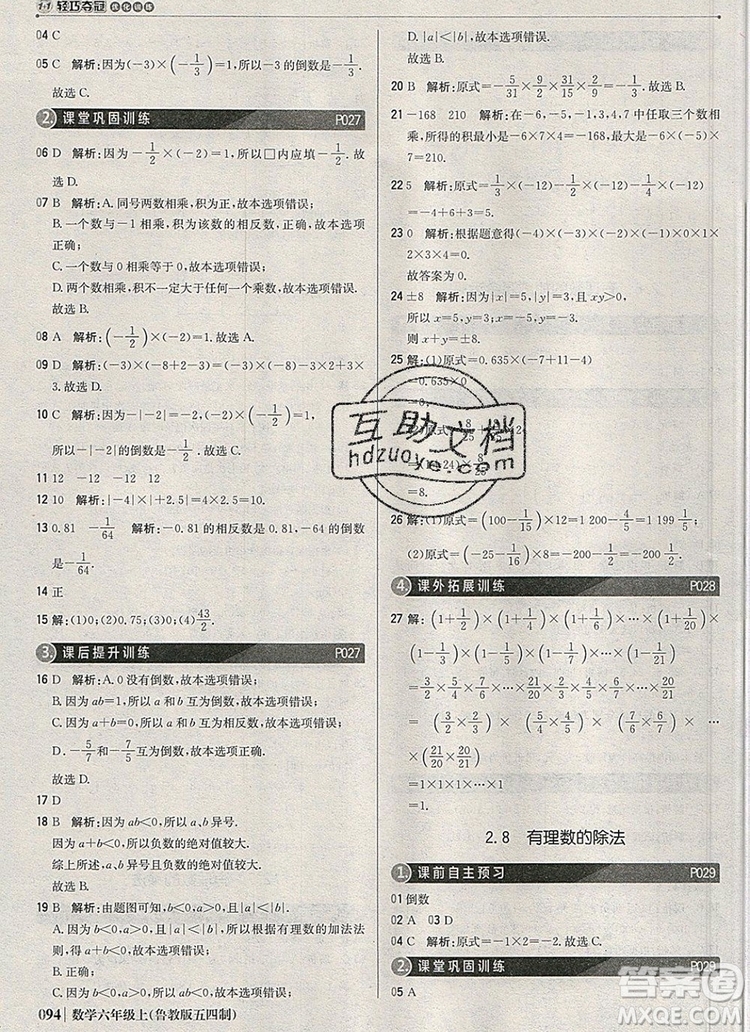 1+1 轻巧夺冠 优化训练
04 C
05 C 解析:因为(-3)×(-1/3)=1,所以-3的倒数是-1/3.
故选C.
2. 课堂巩固训练 P027
06 D 解析:因为-1/2×(-2)=1,所以□内应填-1/2.故
选D.
07 B 解析:A.同号两数相乘,积为正,故本选项错误;
B.一个数与-1相乘,积为该数的相反数,故本选项
正确;
C.一个数与0相乘等于0,故本选项错误;
D.两个数相乘,积为正,这两个数同号,故本选项错误.
故选B.
08 A 解析:(-1/2)×(-2)=1.故选A.
09 D 解析:-3×(-8+2-3)=-3×(-8)-3×2+3×
3.故选D.
10 C 解析:因为-|-2|=-2,(-2)×(-1/2)=1,
所以-|-2|的倒数是-1/2.故选C.
11 12 -12 -12 12
12 10 解析:|-4|×|+2.5|=4×2.5=10.
13 0.81 -1/64 解析:-0.81的相反数是0.81,-64的倒数
是-1/64.
14 正
15 解:(1)0;(2)0.75;(3)43/2.
3. 课后提升训练 P027
16 D 解析:A.0没有倒数,故本选项错误;
B.因为ab=1,所以a、b互为倒数,故本选项错误;
C.因为a+b=0,所以a、b互为相反数,故本选项错误;
D.-5/7和-7/5互为倒数,故本选项正确.
故选D.
17 D
18 B 解析:因为ab<0,所以a、b异号.
因为a+b<0,所以负数的绝对值较大.
综上所述,a、b异号且负数的绝对值较大.
故选B.
19 B 解析:由题图可知,b<0,a>0,且|a|<|b|.
A.因为b<0,a>0,且|a|<|b|,所以根据有理数的加法法
则,得a+b<0,故本选项错误;
B.正确;
C.因为b<0,a>0,所以ab<0,故本选项错误;
094 数学六年级上(鲁教版五四制)
D.|a|<|b|,故本选项错误.
故选B.
20 B 解析:原式=-5/31×9/2×31/15×2/9=-1/3.
21 -168 210 解析:在-6,-5,-1,3,4,7中任取三个数相
乘,所得的积最小是-6×7×4=-168,最大是-6×(-5)×
7=210.
22 5 解析:原式=-1/2×12+2/3×12-(-1/4)×12
=-6+8+3=5.
23 0 解析:根据题意得-4×(-3)×(-2)×(-1)×0×1×
2×3×4=0.
故答案为0.
24 ±8 解析:因为|x|=5,|y|=3,且xy>0,
所以x=5,y=3或x=-5,y=-3.
则x+y=±8.
25 解:(1)原式=0.635×(-7+11-4)
=0.635×0
=0.
=8.
26 解:(1)原式=(100-1/15)×12=1 200-4/5=1 199 1/5;
(2)原式=(-25-1/16)×8=-200-1/2=-200 1/2.
4. 课外拓展训练 P028
27 解:(1+1/2)×(1+1/4)×(1+1/6)×…×(1+1/20)×
(1-1/3)×(1-1/5)×(1-1/7)×…×(1-1/21)
=3/2×5/4×7/6×…×21/20×2/3×4/5×6/7×…×20/21
=(3/2×2/3)×(5/4×4/5)×(7/6×6/7)×…×
(21/20×20/21)
=1×1×1×…×1
=1.
2.8 有理数的除法
1. 课前自主预习 P029
01 倒数
02 A 03 D
04 C 解析:原式=-1×2=-2.故选C.
2. 课堂巩固训练 P029
05 A
互助文档
hdzuoye.com
答案圈
MXQE.COM